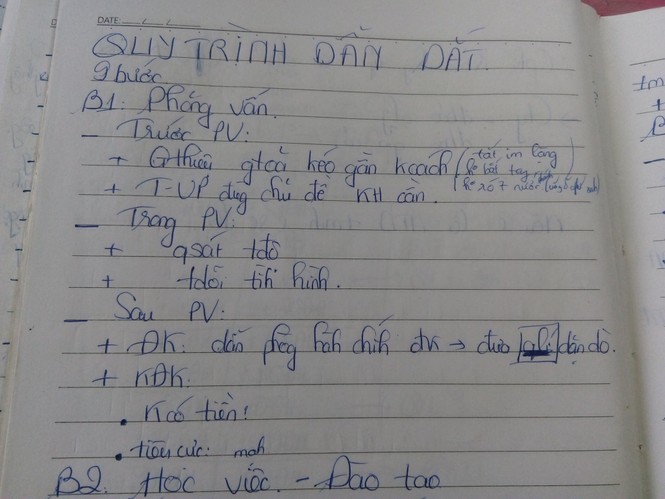 DATE: / /
QUY TRÌNH DẪN DẮT.
9 bước
B1: Phỏng vấn.
- Trước PV:
+ Gthiệu gtcả kéo gần kcách (tắt im lặng
+ T-UP đúng chủ đề KH cần.
- Trong PV:
+ qsát tđộ
+ tdõi tìh hình.
- Sau PV:
+ ĐK: dẫn phòg hàh chíh đk → đưa qlí dặn dò.
+ KĐK:
• K có tiền!
• tiêu cực:
B2. Học việc. - Đào tạo